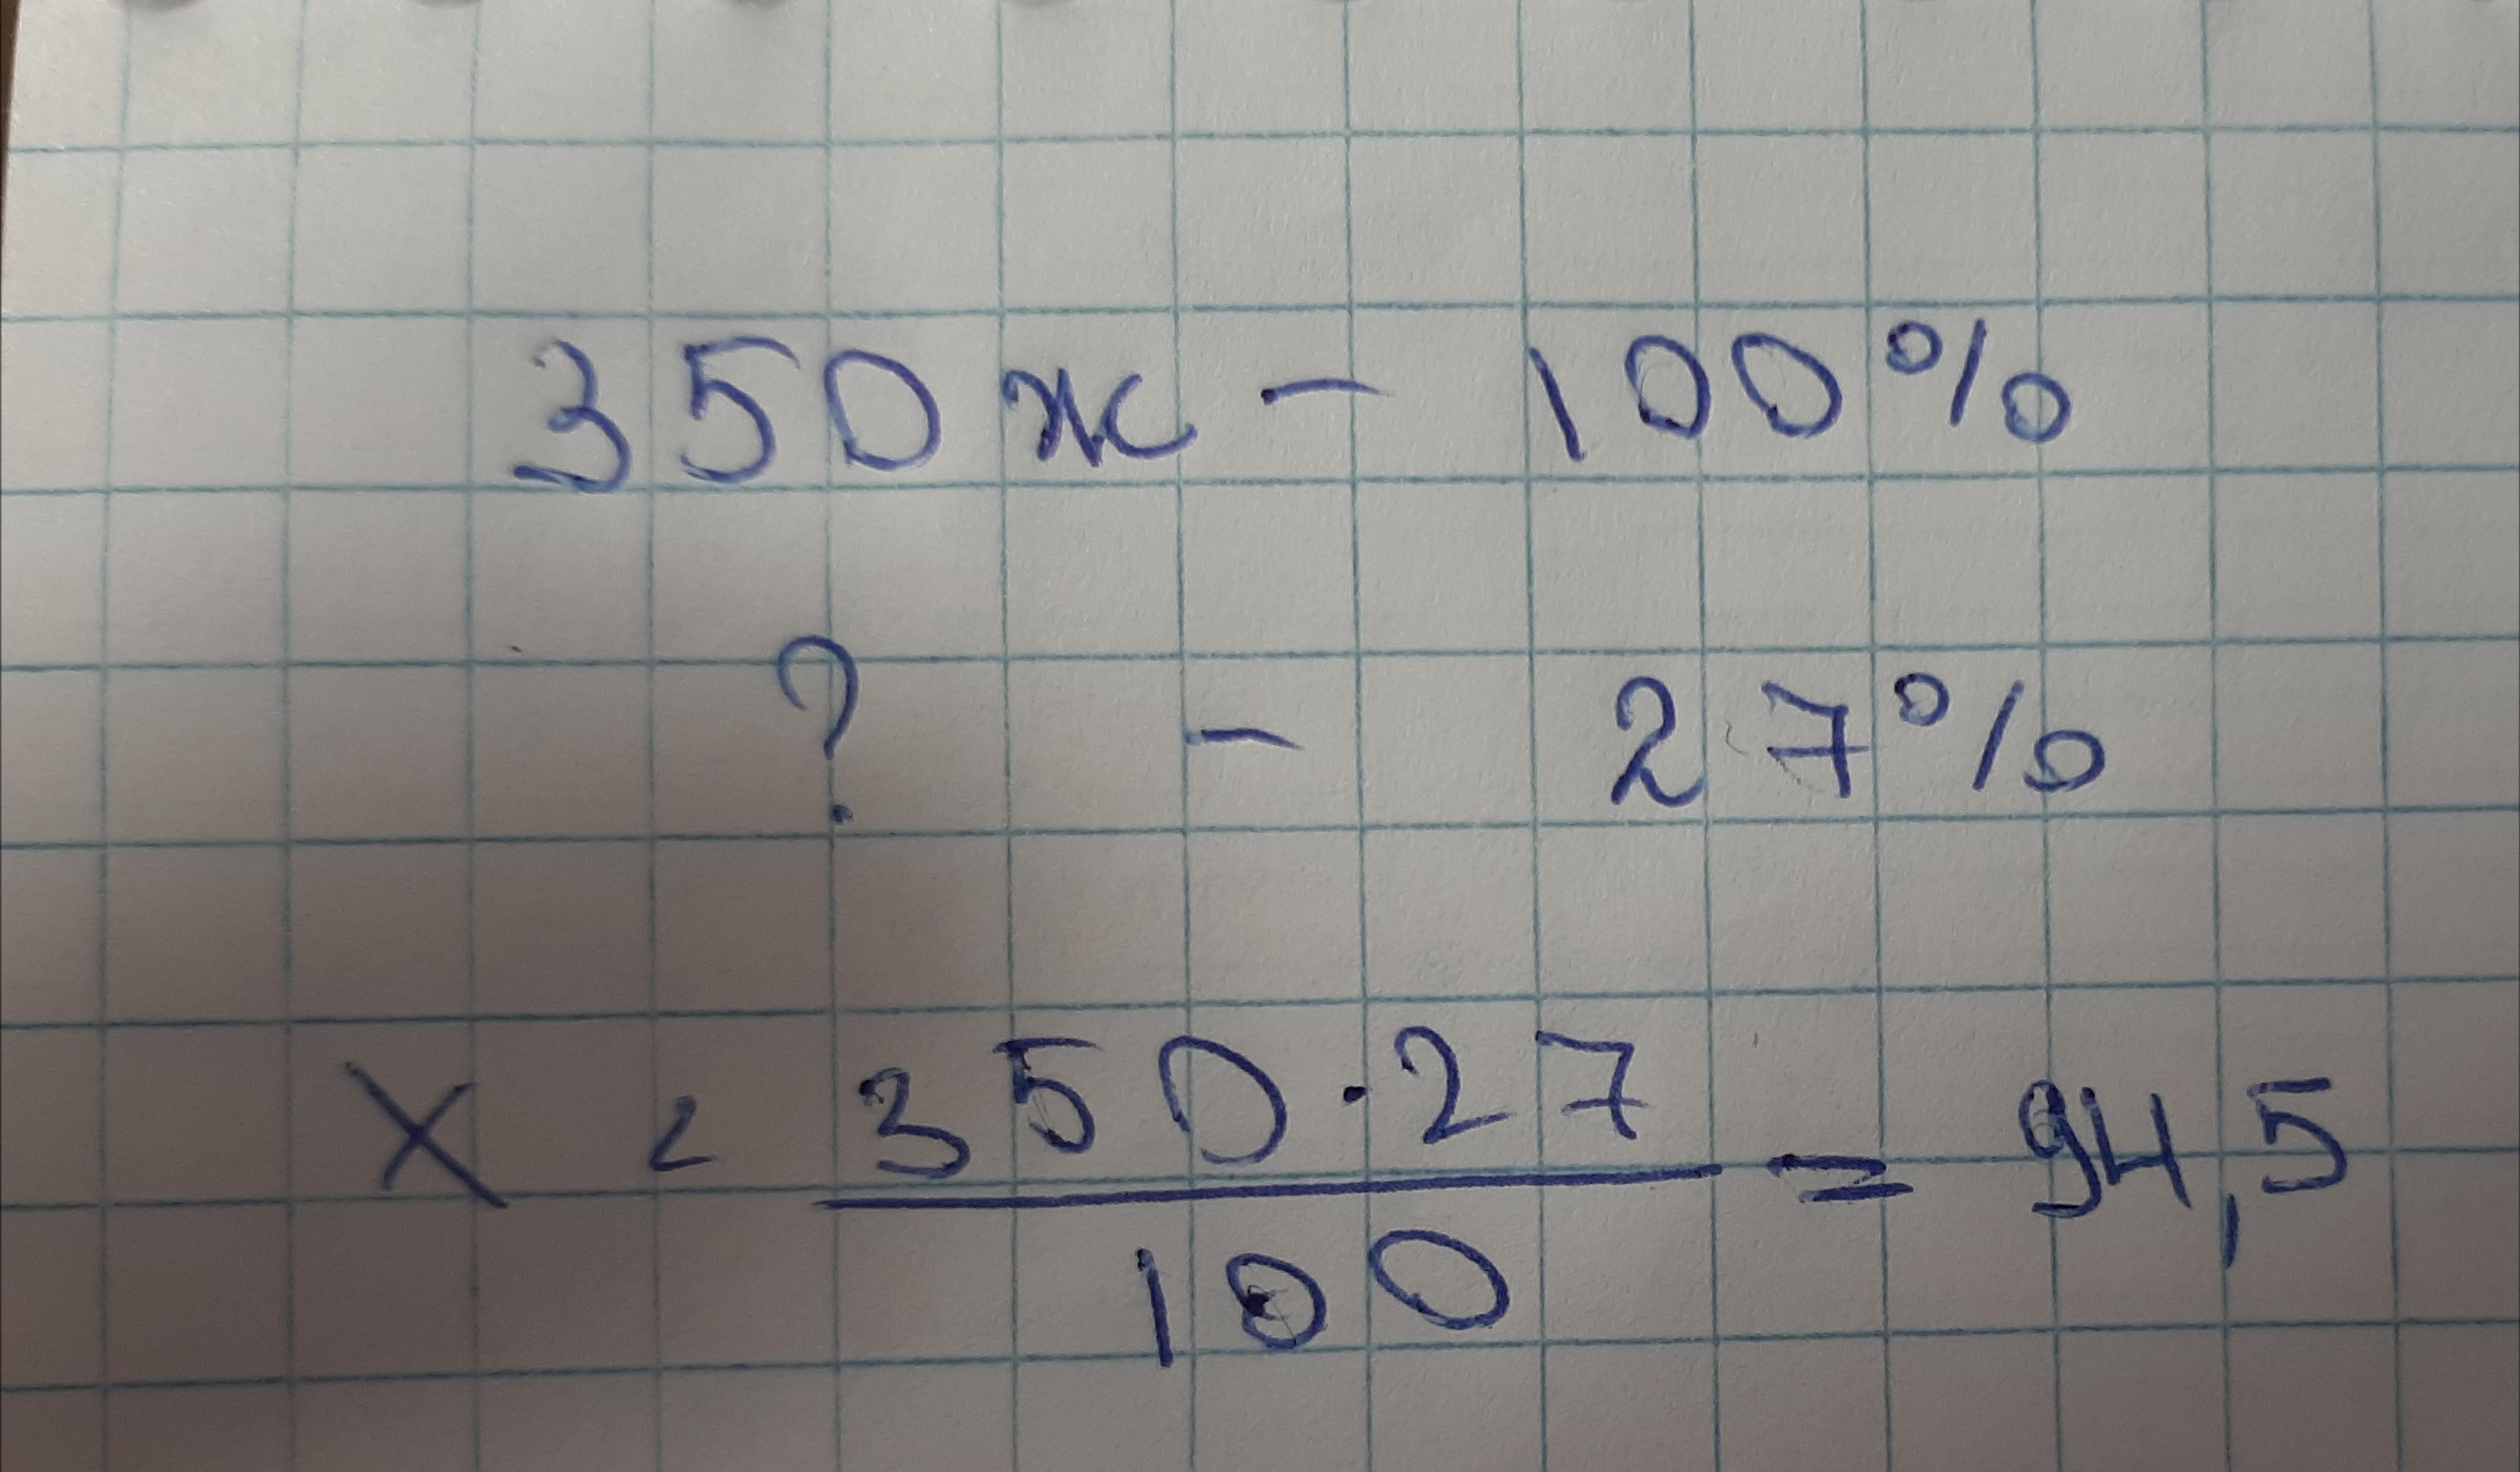 350 ж - 100%
? - 27%
x < 350 · 27 / 100 = 94,5